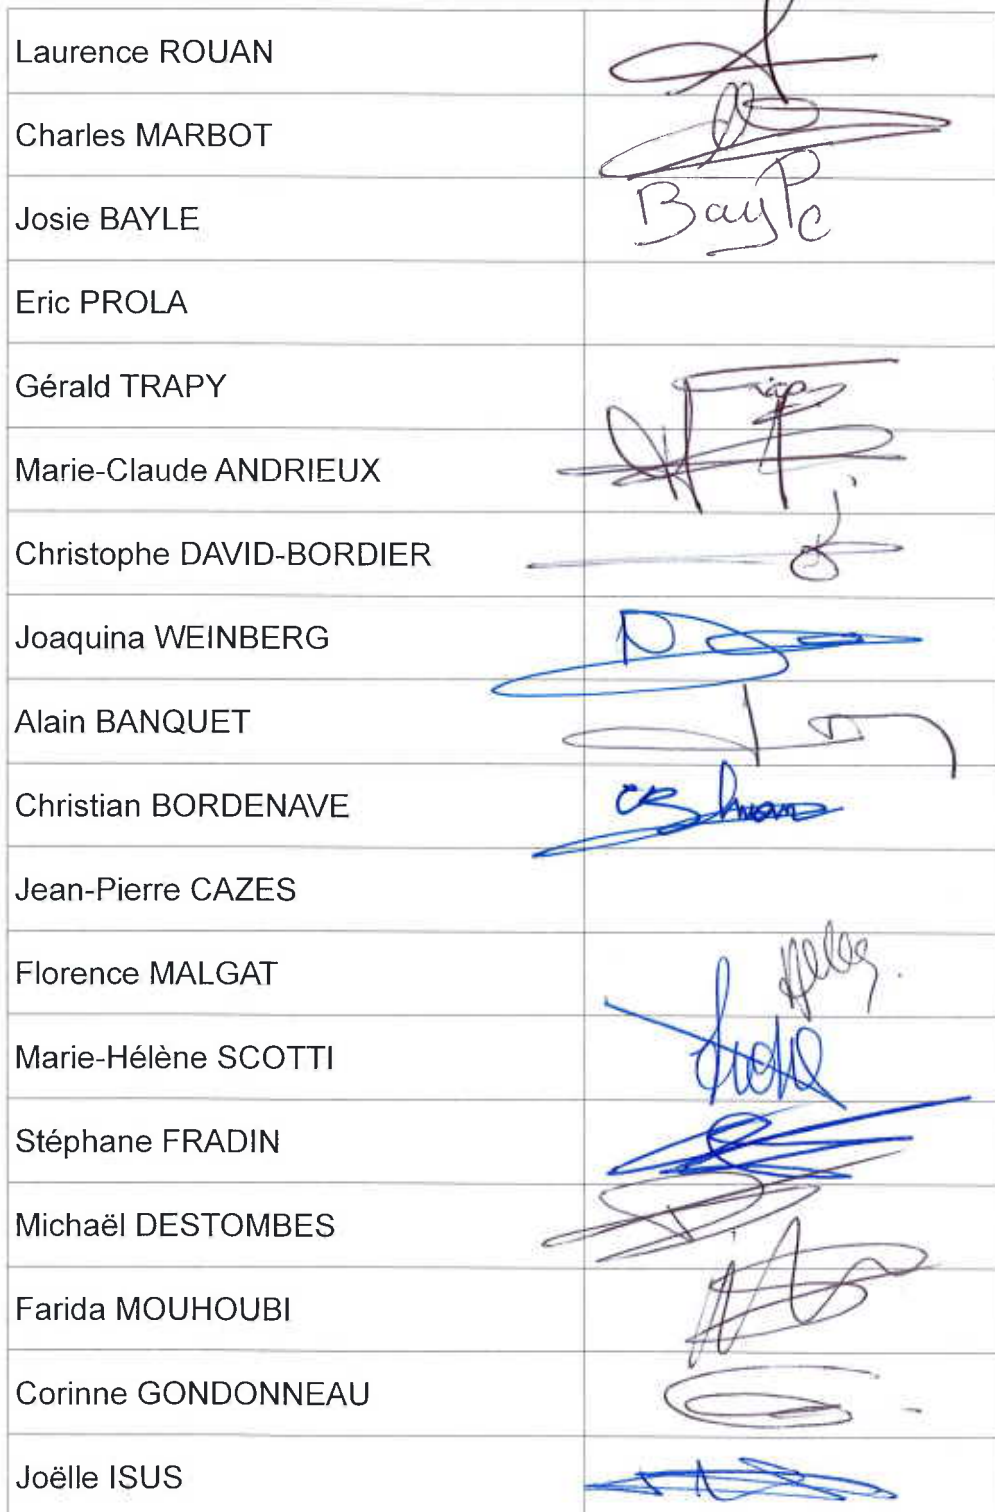 Laurence ROUAN
Charles MARBOT
Josie BAYLE
Bayle
Eric PROLA
Gérald TRAPY
Marie-Claude ANDRIEUX
Christophe DAVID-BORDIER
Joaquina WEINBERG
Alain BANQUET
Christian BORDENAVE
Jean-Pierre CAZES
Florence MALGAT
Marie-Hélène SCOTTI
Stéphane FRADIN
Michaël DESTOMBES
Farida MOUHOUBI
Corinne GONDONNEAU
Joëlle ISUS